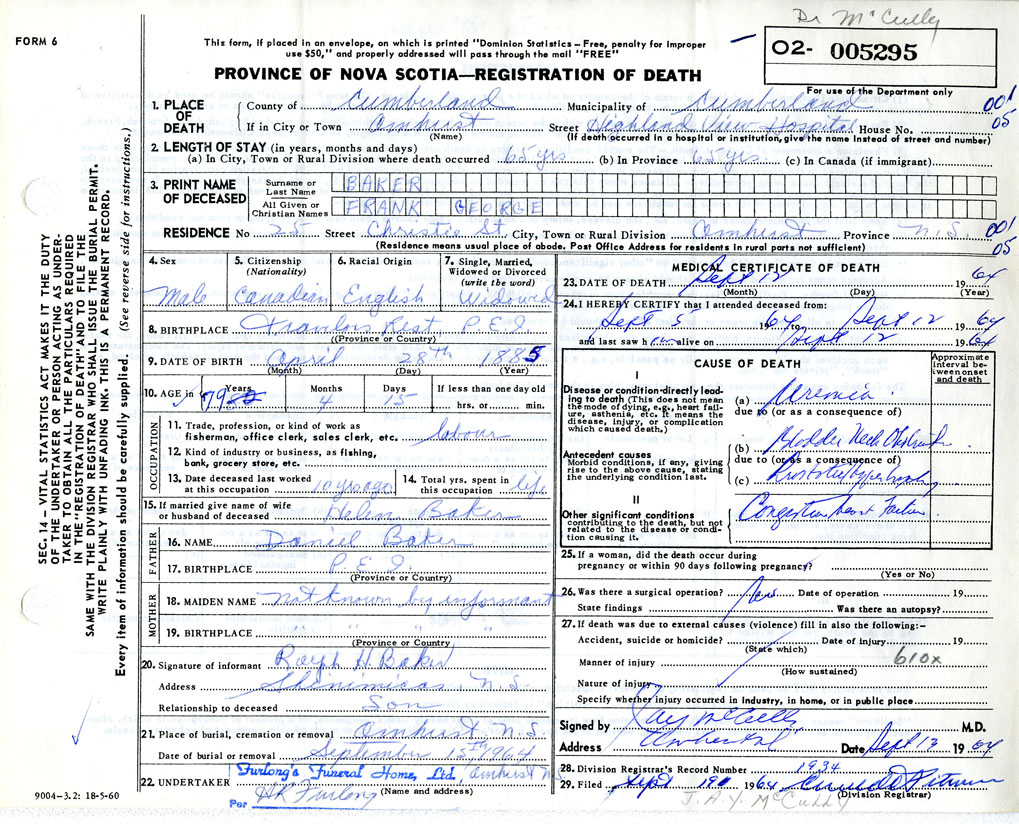 Dr McCully
FORM 6
This form, if placed in an envelope, on which is printed "Dominion Statistics – Free, penalty for improper
use $50," and properly addressed will pass through the mail "FREE"
O2- 005295
PROVINCE OF NOVA SCOTIA—REGISTRATION OF DEATH
For use of the Department only
1. PLACE OF DEATH
County of Cumberland Municipality of Cumberland 001
If in City or Town Amherst Street Highland View Hospital House No. 05
(Name) (If death occurred in a hospital or institution, give its name instead of street and number)
2. LENGTH OF STAY (in years, months and days)
(a) In City, Town or Rural Division where death occurred 65 yrs (b) In Province 65 yrs. (c) In Canada (if immigrant)
3. PRINT NAME OF DECEASED
Surname or Last Name BAKER
All Given or Christian Names FRANK GEORGE
RESIDENCE No 25 Street Christie St. City, Town or Rural Division Amherst Province N.S. 001
(Residence means usual place of abode. Post Office Address for residents in rural parts not sufficient) 05
4. Sex Male
5. Citizenship (Nationality) Canadian
6. Racial Origin English
7. Single, Married, Widowed or Divorced (write the word) Widowed
8. BIRTHPLACE Rest, P.E.I.
((Province or Country)
9. DATE OF BIRTH April 28th 1885
(Month) (Day) (Year)
10. AGE in Years 79 Months 4 Days 15 If less than one day old hrs. or min.
OCCUPATION
11. Trade, profession, or kind of work as
fisherman, office clerk, sales clerk, etc. labour
12. Kind of industry or business, as fishing,
bank, grocery store, etc.
13. Date deceased last worked
at this occupation 10 yrs ago
14. Total yrs. spent in
this occupation life
15. If married give name of wife
or husband of deceased Helen Baker
FATHER
16. NAME Daniel Baker
17. BIRTHPLACE P.E.I.
(Province or Country)
MOTHER
18. MAIDEN NAME not known by informant
19. BIRTHPLACE " " " "
(Province or Country)
20. Signature of informant Ralph H. Baker
Address Shinimicas, N.S.
Relationship to deceased Son
21. Place of burial, cremation or removal Amherst N.S.
Date of burial or removal September 15th 1964
22. UNDERTAKER Furlong's Funeral Home, Ltd. Amherst N.S.
(Name and address)
Per Furlong
9004-3.2: 18-5-60
SEC. 14 – VITAL STATISTICS ACT MAKES IT THE DUTY
OF THE UNDERTAKER OR PERSON ACTING AS UNDER-
TAKER TO OBTAIN ALL THE PARTICULARS REQUIRED
IN THE "REGISTRATION OF DEATH" AND TO FILE THE
SAME WITH THE DIVISION REGISTRAR WHO SHALL ISSUE THE BURIAL PERMIT.
WRITE PLAINLY WITH UNFADING INK. THIS IS A PERMANENT RECORD.
Every item of information should be carefully supplied. (See reverse side for instructions.)
MEDICAL CERTIFICATE OF DEATH
23. DATE OF DEATH Sept 12 1964
(Month) (Day) (Year)
24. I HEREBY CERTIFY that I attended deceased from:
Sept 5 1964 to Sept 12 1964
and last saw him alive on Sept 12 1964
CAUSE OF DEATH
Approximate interval between onset and death
I
Disease or condition directly lead-
ing to death (This does not mean
the mode of dying, e.g., heart fail-
ure, asthenia, etc. It means the
disease, injury, or complication
which caused death.)
(a) Uremia
due to (or as a consequence of)
Antecedent causes
Morbid conditions, if any, giving
rise to the above cause, stating
the underlying condition last.
(b) Bladder Neck Obstruction
due to (or as a consequence of)
(c) Prostatic hypertrophy
II
Other significant conditions
contributing to the death, but not
related to the disease or condi-
tion causing it.
Congestive heart Failure
25. If a woman, did the death occur during
pregnancy or within 90 days following pregnancy?
(Yes or No)
26. Was there a surgical operation? Date of operation 19
State findings Was there an autopsy?
27. If death was due to external causes (violence) fill in also the following:–
Accident, suicide or homicide? Date of injury 19
(State which)
Manner of injury 610x
(How sustained)
Nature of injury
Specify whether injury occurred in industry, in home, or in public place
Signed by McCully M.D.
Address Amherst Date Sept 13 1964
28. Division Registrar's Record Number 1934
29. Filed Sept 19 1964
(Division Registrar)
J.A.Y. McCully